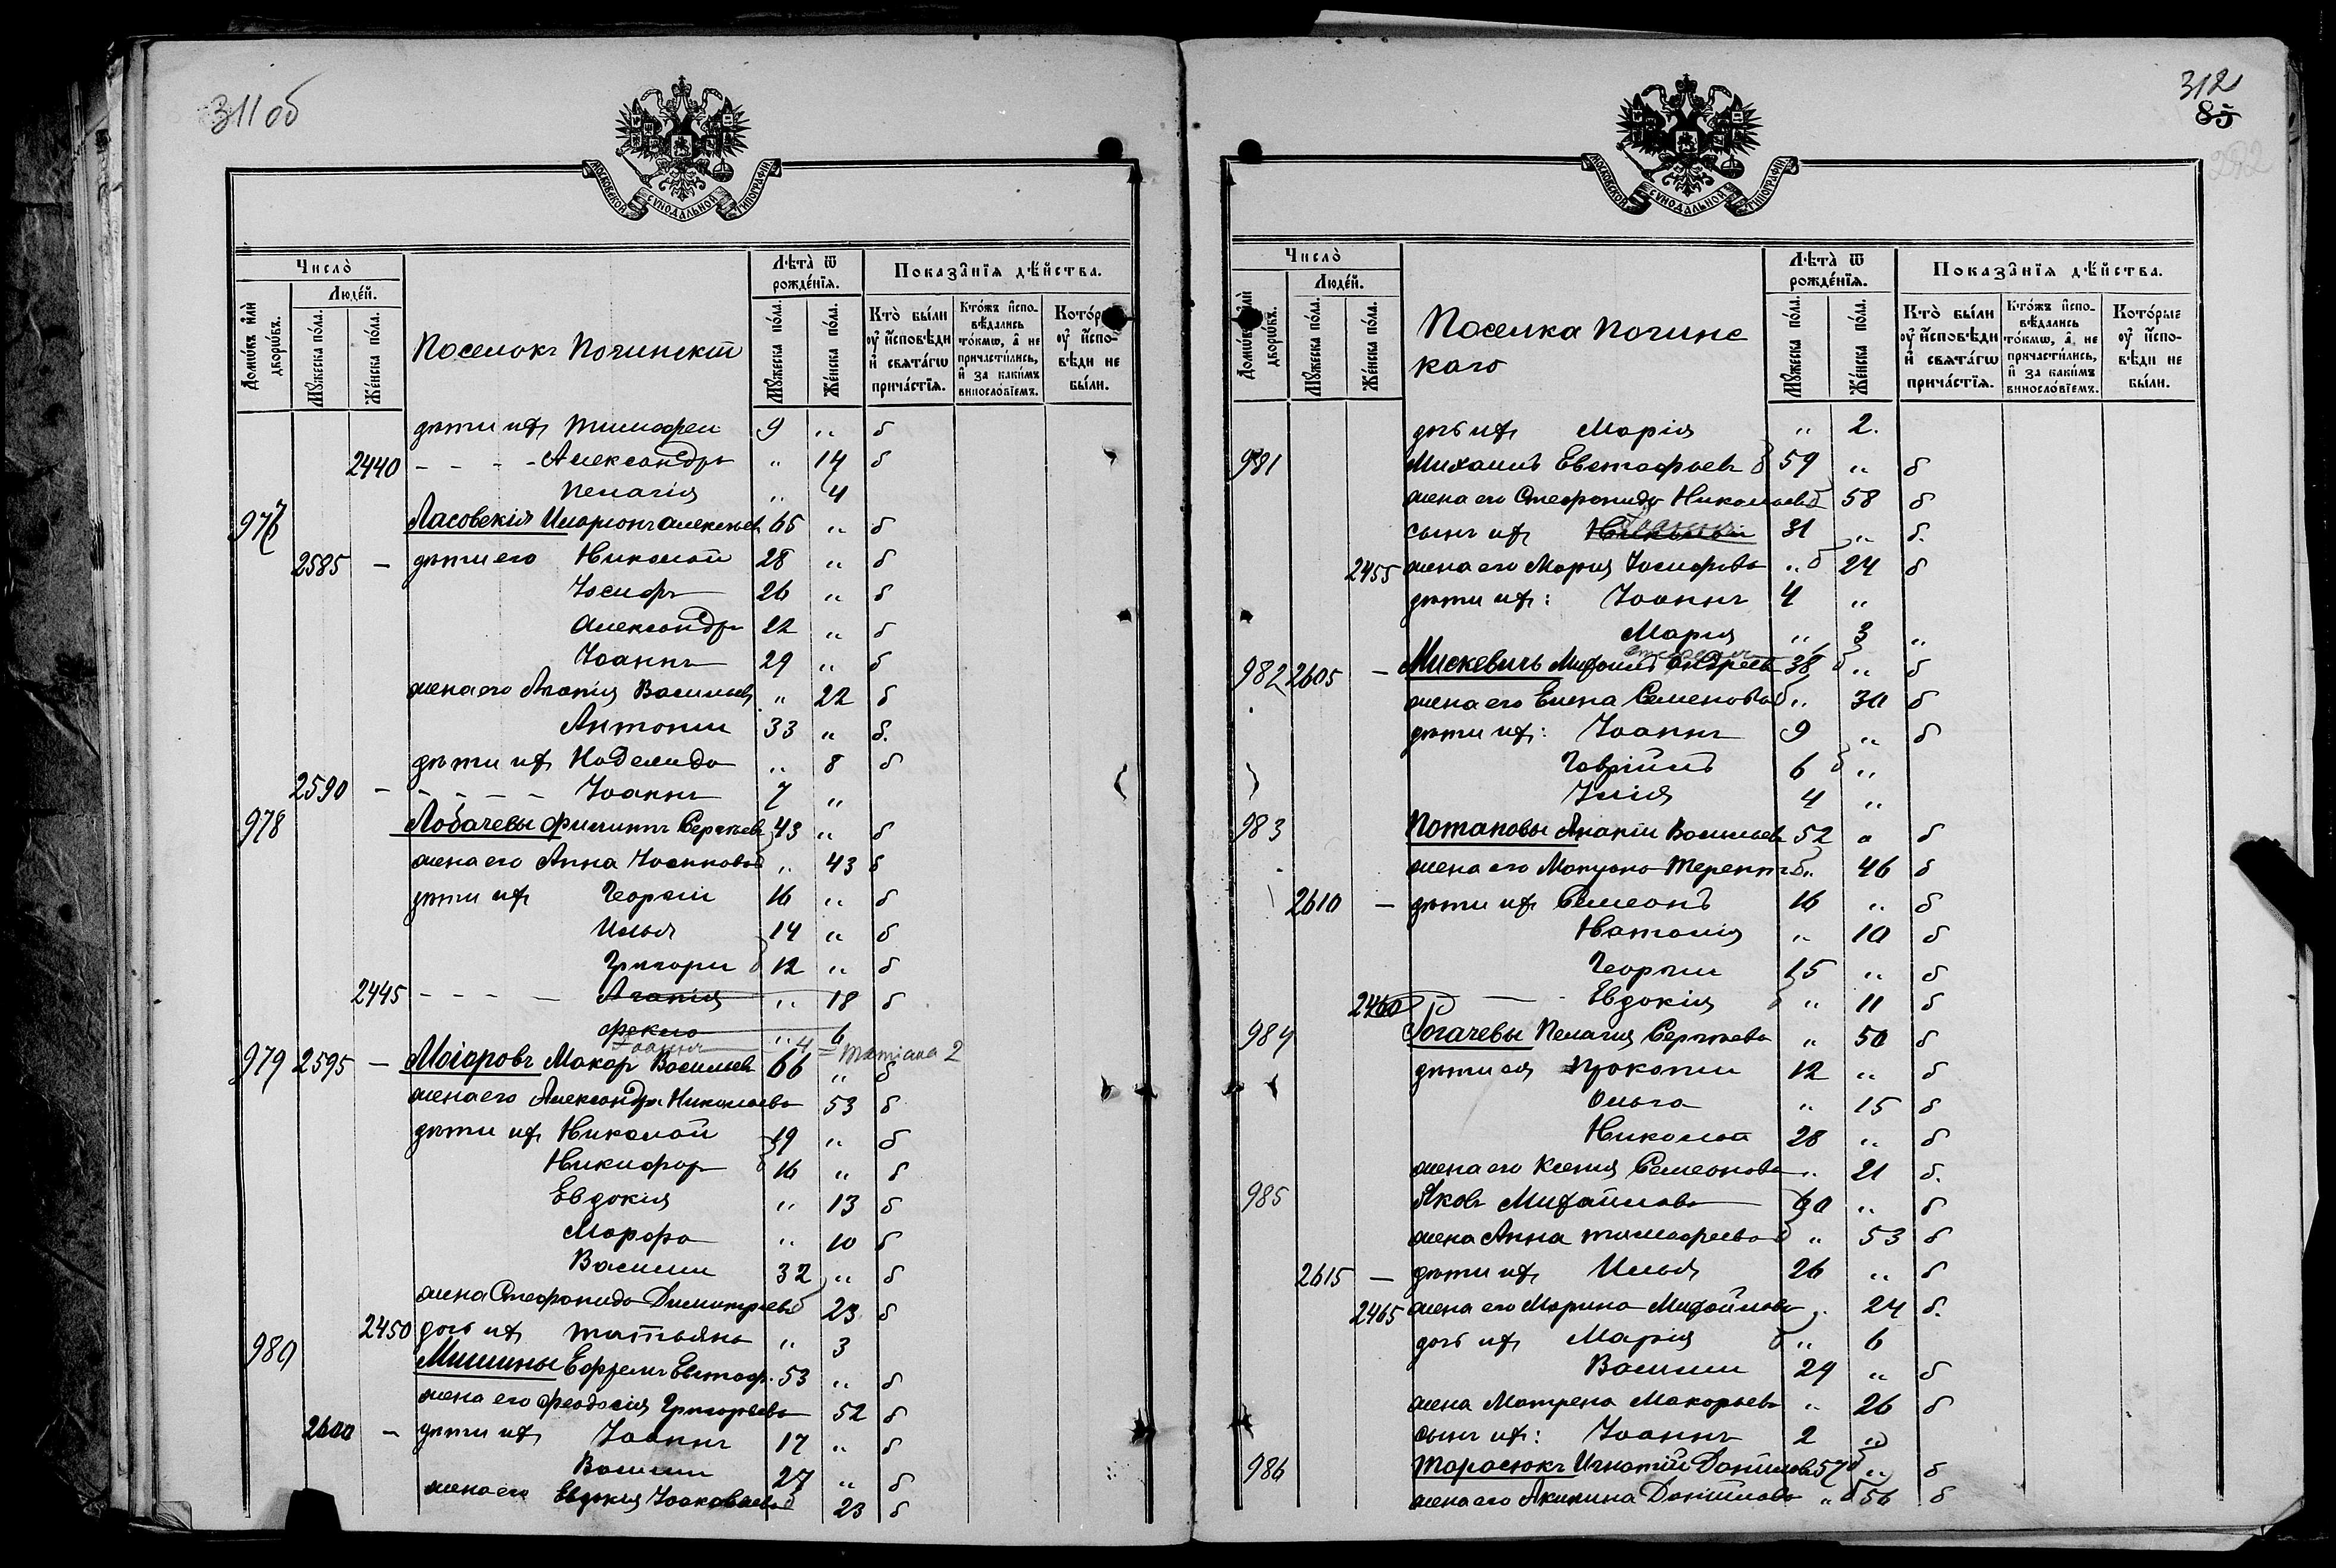 311 об
МОСКОВСКОЙ СѴНОДАЛЬНОЙ ТИПОГРАФІИ
Число̀
Люде́й.
Домѡ́въ и҆лѝ дворѡ́въ.
Мꙋ́жеска по́ла.
Же́нска по́ла.
Поселокъ Починскій
Лѣ́та ѿ рожде́нїѧ.
Мꙋ́жеска по́ла.
Же́нска по́ла.
Показа̑нїѧ дѣ́йства.
Кто̀ бы́ли оу҆ и҆сповѣ́ди и҆ свѧта́гѡ прича́стїѧ.
Кто́жъ и҆сповѣ́дались то́кмѡ, а҆ не причасти́лись, и҆ за каки́мъ виносло́вїемъ.
Кото́рые оу҆ и҆сповѣ́ди не бы́ли.
дѣти их Тимофей 9 „ б
2440 - - - - Александра „ 14 б
Пелагія „ 4
977 Ласовскій Иларіонъ Алексѣев 65 „ б
2585 — дѣти его Николай 28 „ б
Іосифъ 26 „ б
Александръ 22 „ б
Іоаннъ 29 „ б
жена его Агапія Васильев „ 22 б
Антоній 33 „ б.
дѣти их Надежда „ 8 б
2590 - - - - - Іоаннъ 7 „
978 Лобачевы Филиппъ Сергѣев 43 „ б
жена его Анна Іоаннова „ 43 б
дѣти их Георгій 16 „ б
Илья 14 „ б
Григорій 12 „ б
2445 - - - - Агапія „ 18 б
Фекла „ 6
Іоаннъ 4 = Татіана 2
979 2595 — Макаровъ Макар Васильев 66 „ б
жена его Александра Николаева 53 б
дѣти их Николай 19 „ б
Никифор 16 „ б
Евдокія „ 13 б
Марфа „ 10 б
Василій 32 „ б
жена Стефанида Димитріева 23 б
2450 дочь их Татьяна „ 3
980 Мишины Ефремъ Евстаф. 53 „ б
жена его Феодосія Григорьева 52 б
2600 — дѣти их Іоаннъ 17 „ б
Василій 27 „ б
жена его Евдокія Іоаковлева 23 б
312
85
292
МОСКОВСКОЙ СѴНОДАЛЬНОЙ ТИПОГРАФІИ
Число̀
Люде́й.
Домѡ́въ и҆лѝ дворѡ́въ.
Мꙋ́жеска по́ла.
Же́нска по́ла.
Поселка Починс
каго
Лѣ́та ѿ рожде́нїѧ.
Мꙋ́жеска по́ла.
Же́нска по́ла.
Показа̑нїѧ дѣ́йства.
Кто̀ бы́ли оу҆ и҆сповѣ́ди и҆ свѧта́гѡ прича́стїѧ.
Кто́жъ и҆сповѣ́дались то́кмѡ, а҆ не причасти́лись, и҆ за каки́мъ виносло́вїемъ.
Кото́рые оу҆ и҆сповѣ́ди не бы́ли.
дочь их Марія „ 2.
981 Михаилъ Евстафьев б 59 „ б
жена его Стефанида Николаев б 58 б
сынъ их Николай 31 „ б.
2455 жена его Марія Іосифова „ б 24 б
дѣти их: Іоаннъ 4 „
Марія „ 3 „
982 2605 — Мискевичъ Михаилъ Андреев 38 б „ б
жена его Елена Семенова б „ 30 б
дѣти их: Іоаннъ 9 „ б
Гавріилъ 6 б „
Илія 4 „
983 Потаповы Ананій Васильев 52 „ б
жена его Матрона Терент. б „ 46 б
2610 — дѣти их Семеонъ 16 „ б
Наталія „ 10 б
Георгій 15 „ б
2460 — Евдокія б „ 11 б
984 Рогачевы Пелагія Сергѣева „ 50 б
дѣти ея Прокопій 12 „ б
Ольга „ 15 б
Николай 28 „ б
жена его Ксенія Семеонова „ 21 б.
985 Яковъ Михайлов 60 „ б
жена Анна Тимофеева б „ 53 б
2615 — дѣти их Илья 26 „ б
2465 жена его Марина Михайлова „ 24 б.
дочь их Марія б „ 6
Василій 29 „ б
жена Матрена Макарьева „ 26 б
сынъ их: Іоаннъ 2 „
986 Тарасюкъ Игнатій Даниилов 57 б „ б
жена его Акилина Даниилова „ б 56 б